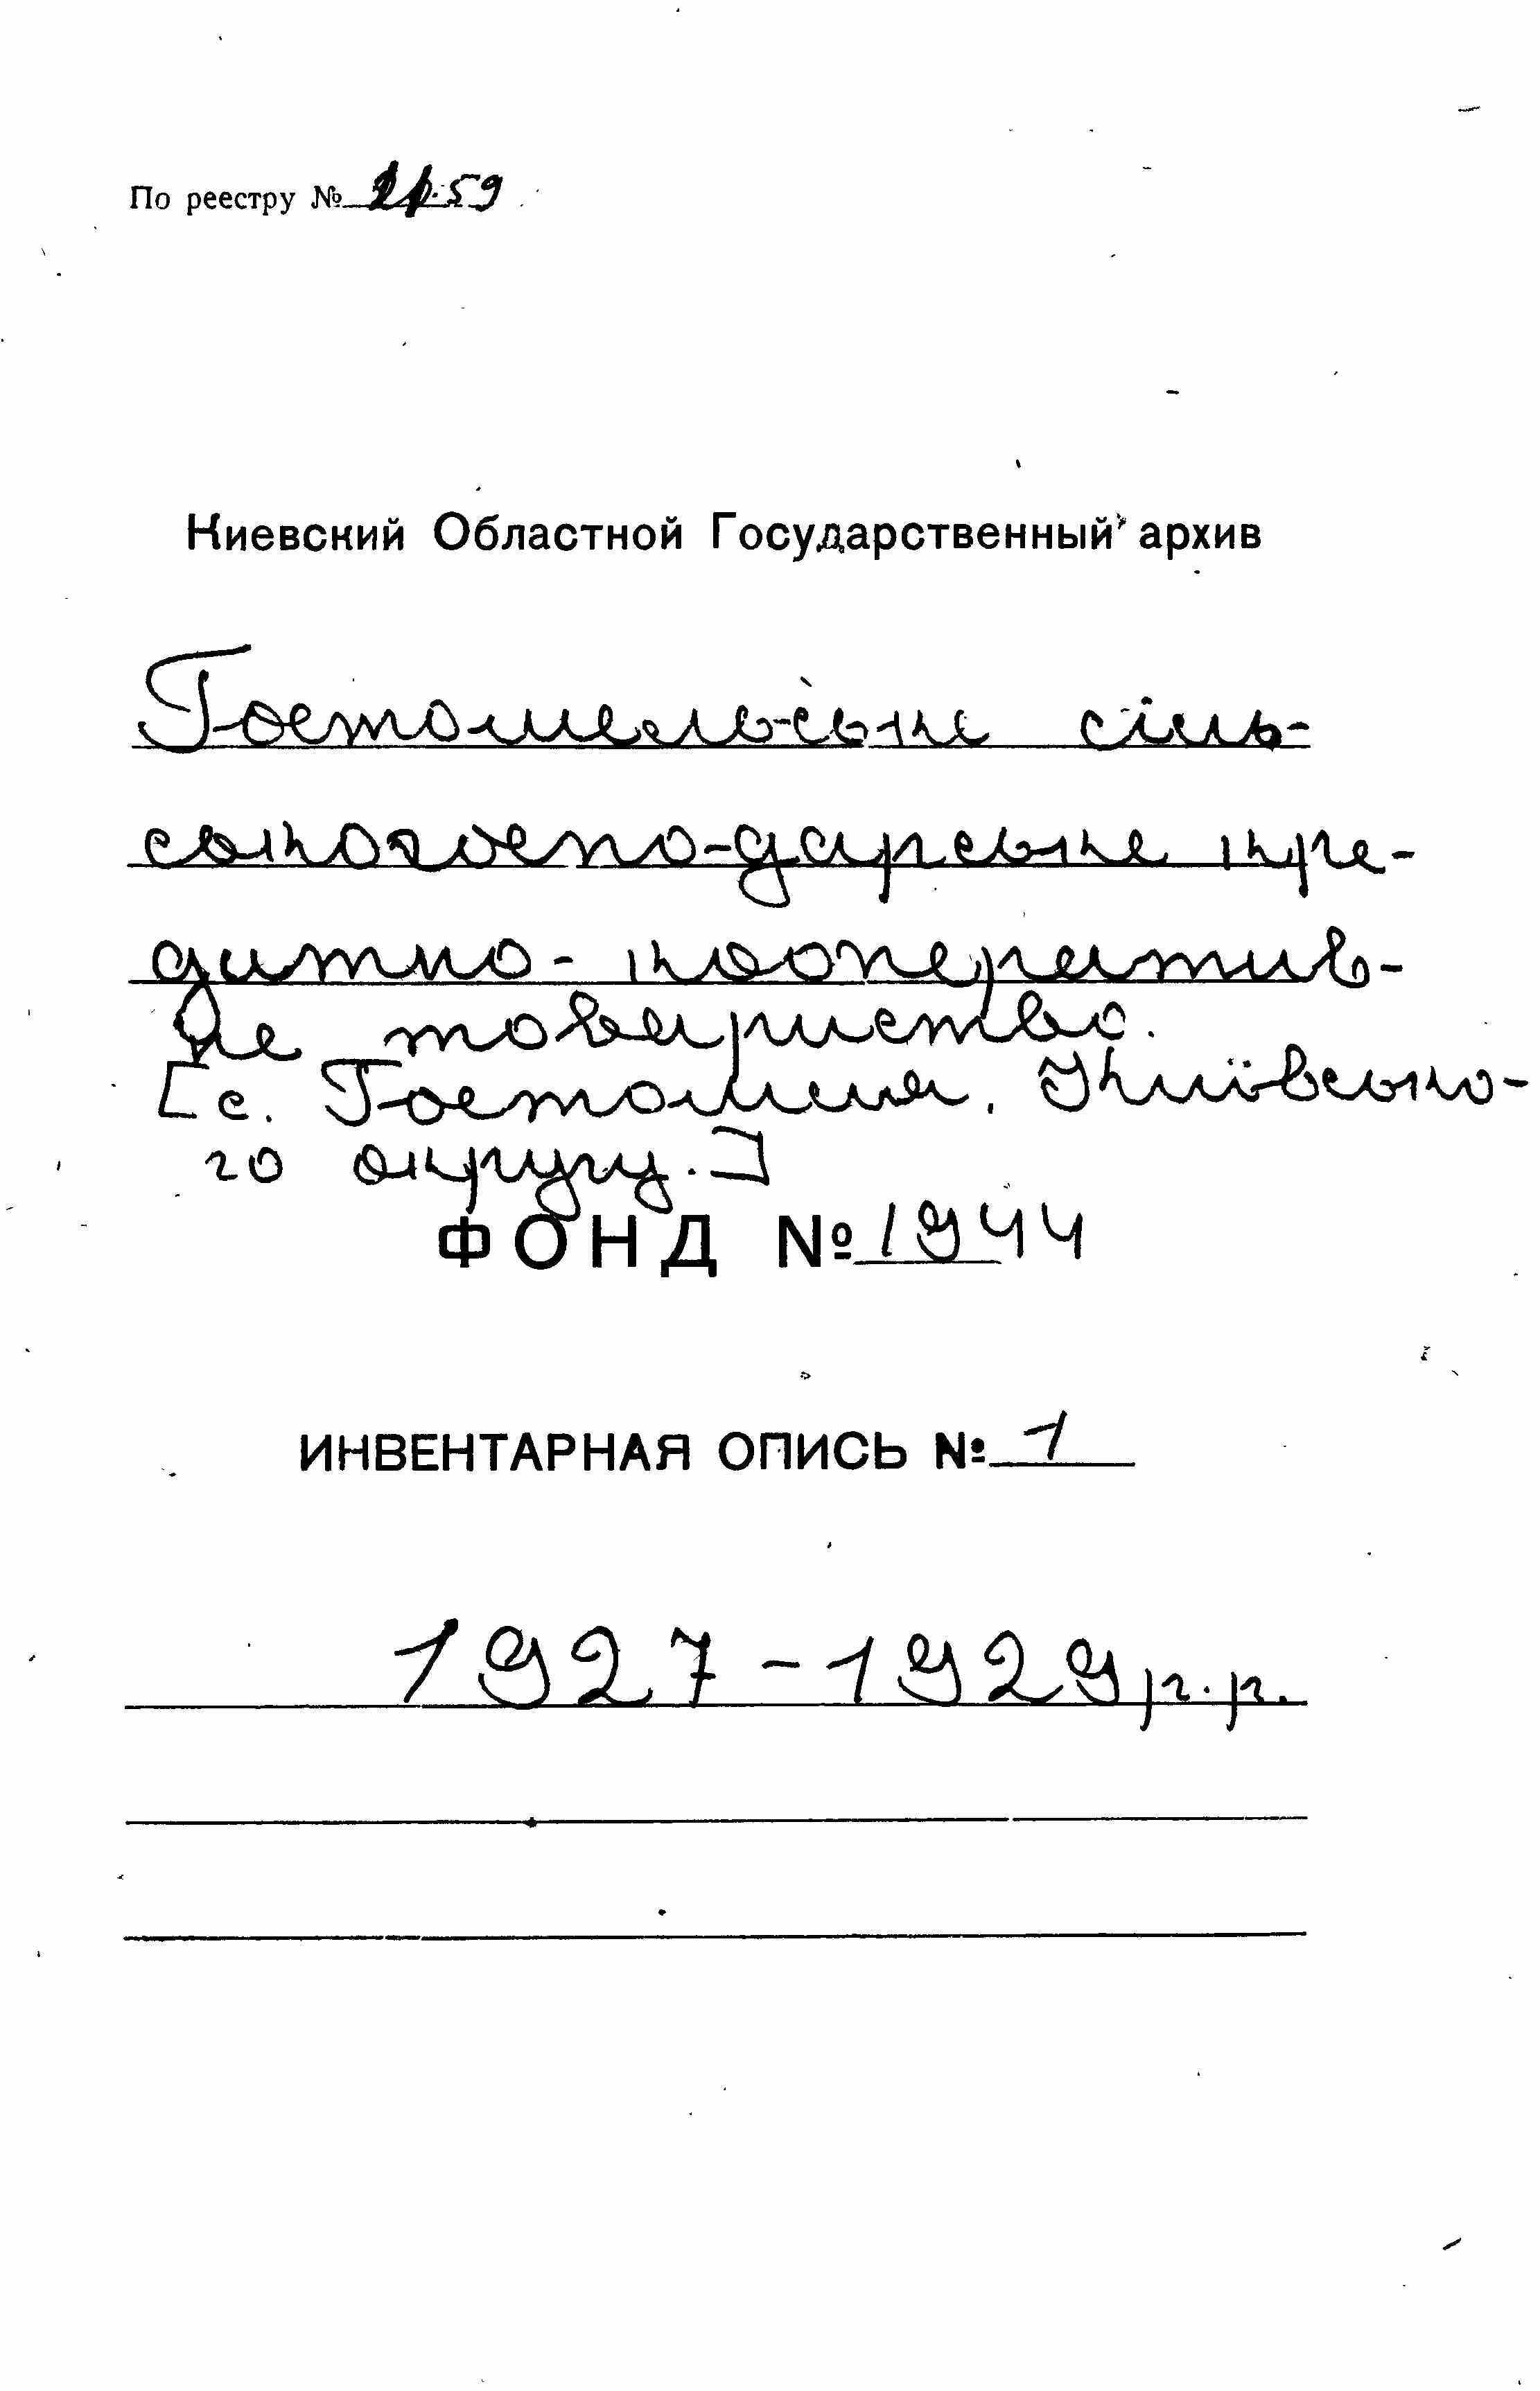 По реестру №
Киевский Областной Государственный архив
Гостомельське сіль-
ськогоспо-дарське кре-
дитно-кооператив-
не товариство.
[с. Гостомля. Київсько-
го округу.]
ФОНД № 1944
ИНВЕНТАРНАЯ ОПИСЬ № 1
1927-1929 р.р.